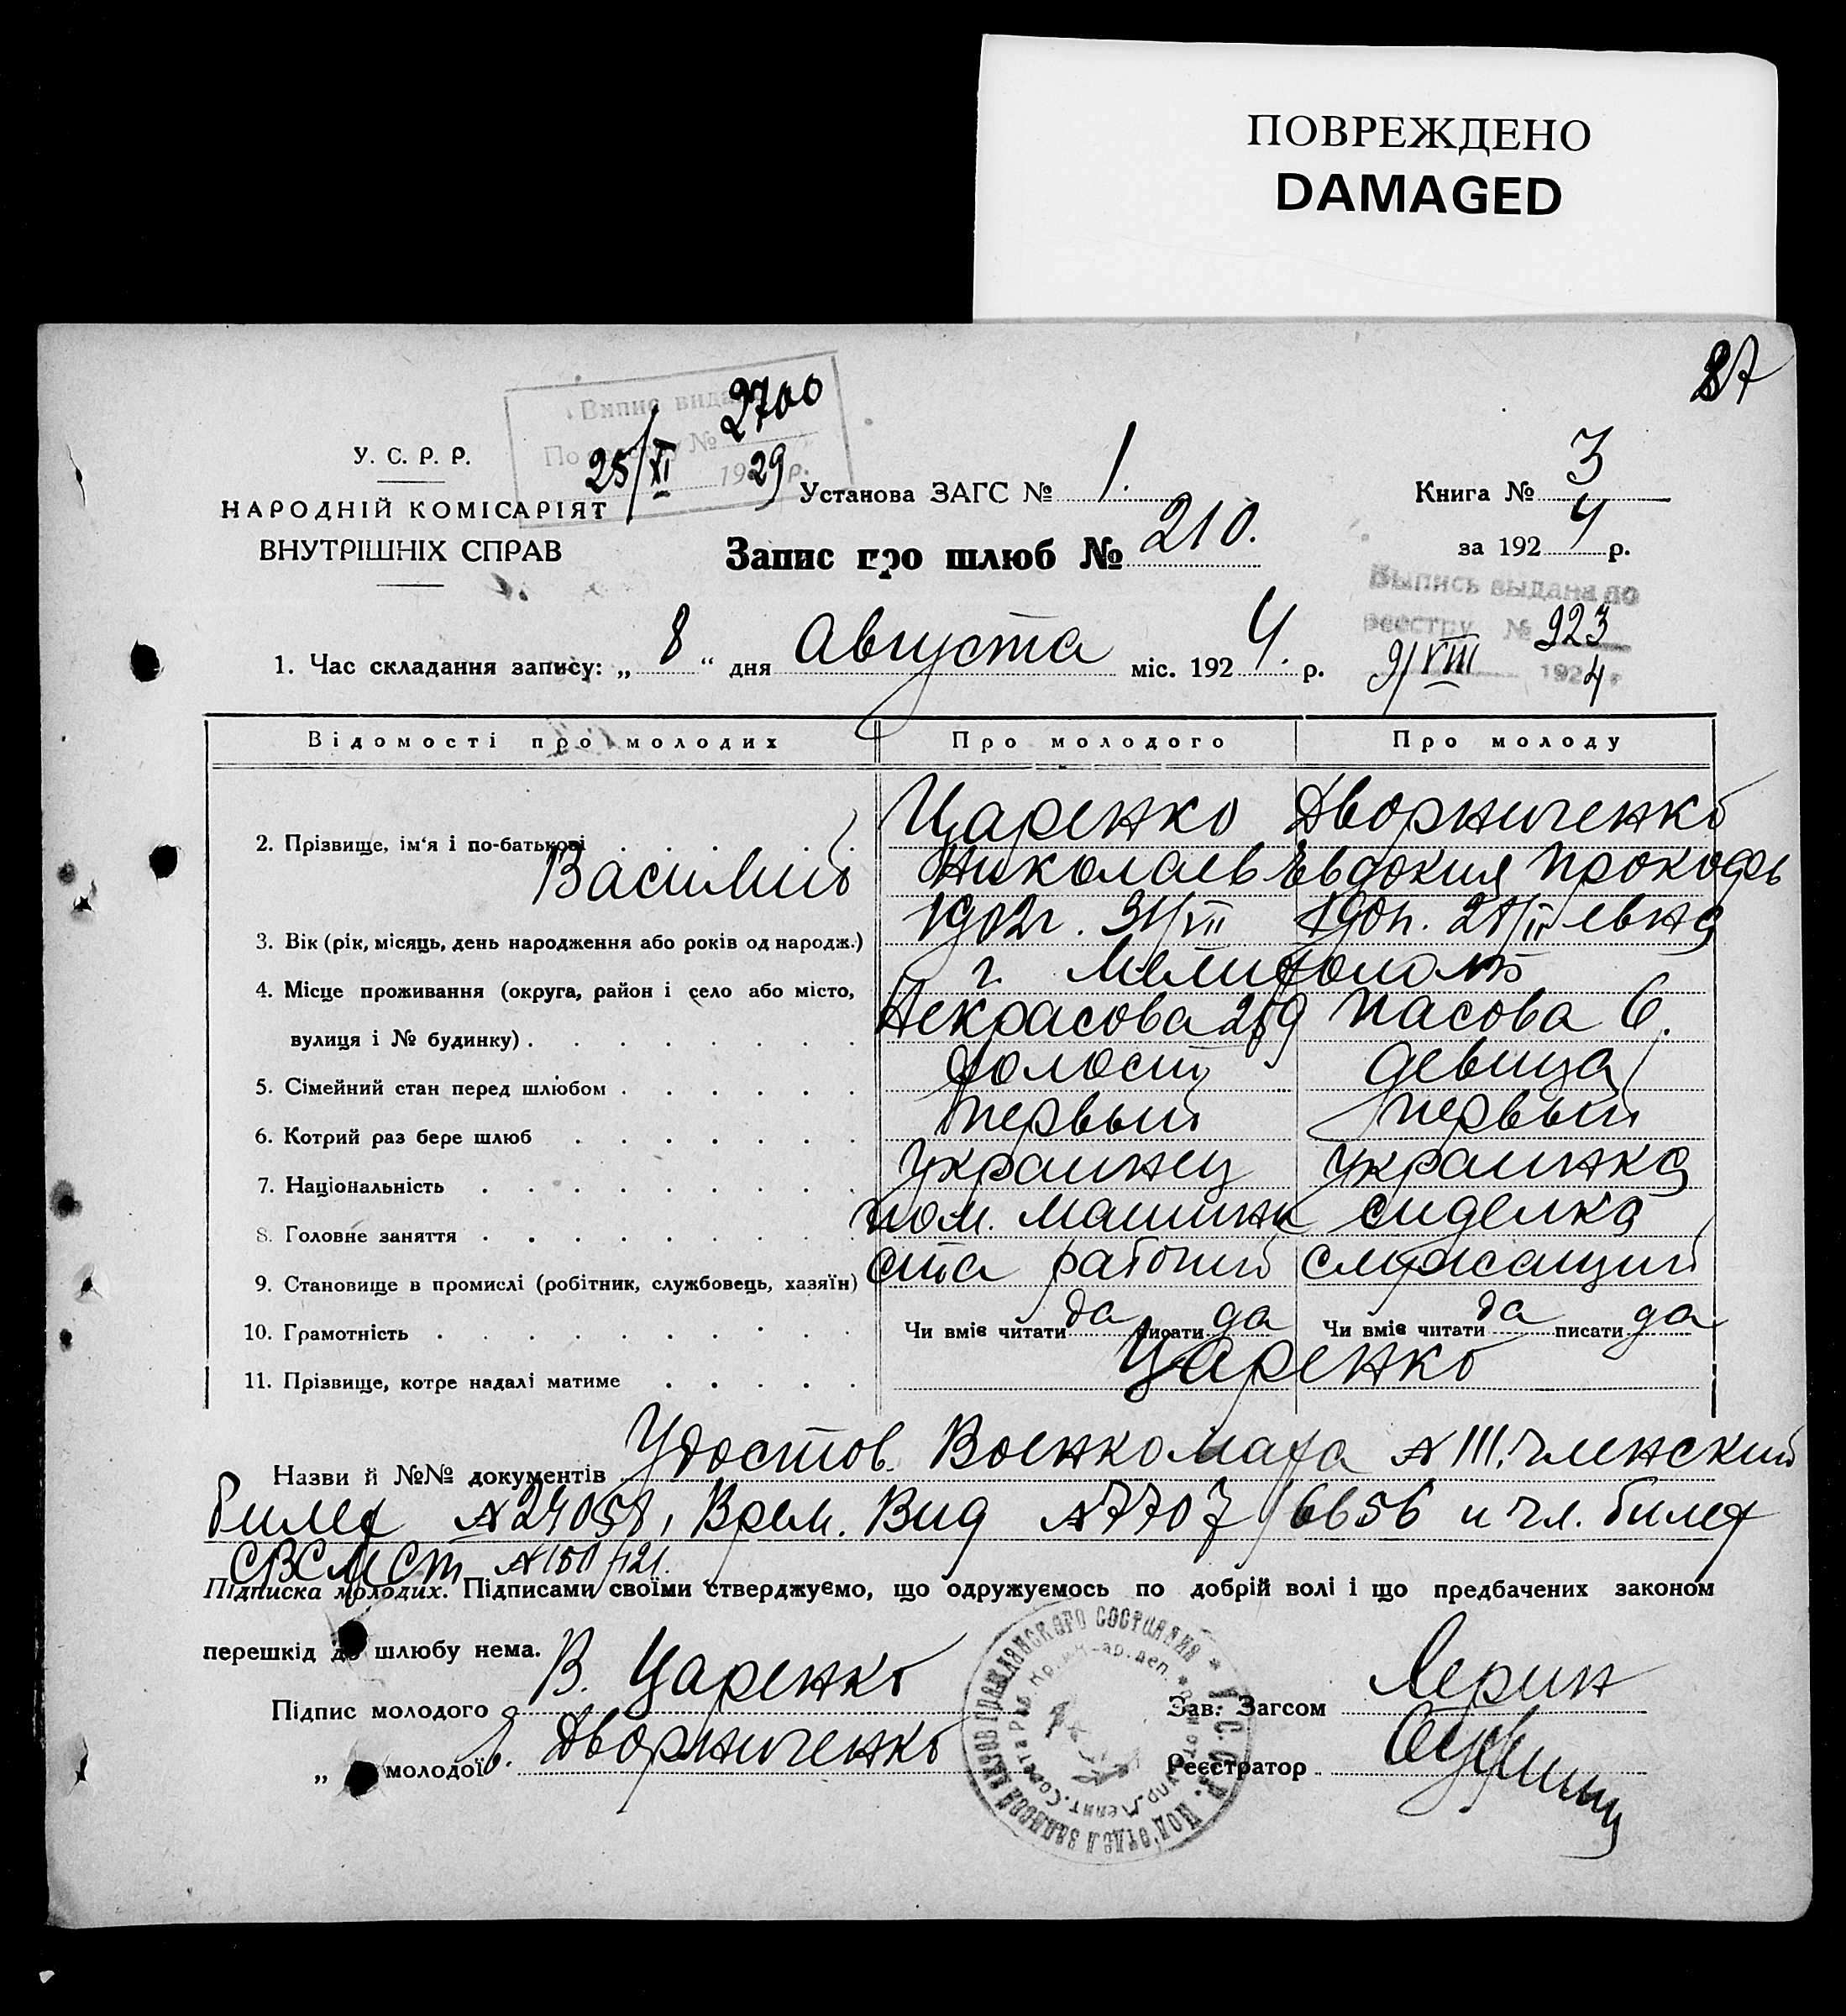 ПОВРЕЖДЕНО
DAMAGED
87
Випис видано
2700
По № 
25/XI 1929 р.
У. С. Р. Р.
НАРОДНІЙ КОМІСАРІЯТ
ВНУТРІШНІХ СПРАВ
Установа ЗАГС № 1.
Книга № 3
за 1924 р.
Запис про шлюб № 210.
Выпись выдана по
реестру № 923
9/VIII 1924 г
1. Час складання запису: „ 8 “ дня Августа міс. 1924. р.
Відомості про молодих Про молодого Про молоду
2. Прізвище, ім‘я і по-батькові Царенко Дворниченко
Василий Николаев Евдокия Прокофь
3. Вік (рік, місяць, день народження або років од народж.) 1902г. 31/VII 190 г. 21/II евна
4. Місце проживання (округа, район і село або місто, г. Мелитополь
вулиця і № будинку) Некрасова 259 6.
5. Сімейний стан перед шлюбом холост девица
6. Котрий раз бере шлюб первый первый
7. Національність украинец украинка
8. Головне заняття пом. машини сиделка
9. Становище в промислі (робітник, службовець, хазяїн) ста рабочий служащий
10. Грамотність Чи вміє читати да писати да Чи вміє читати да писати да
11. Прізвище, котре надалі матиме Царенко
Назви й №№ документів Удостов. Военкомата № III. членский
билет № 24058, Врем. Вид № 7707/6656 и чл. билет
Підписка молодих. Підписами своїми стверджуємо, що одружуємось по добрій волі і що предбачених законом
перешкід до шлюбу нема.
Підпис молодого В. Царенко
„ молодої Дворниченко
Зав. Загсом
Реєстратор